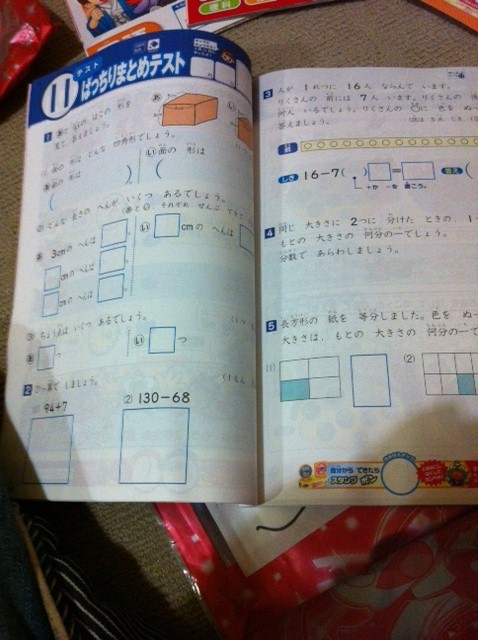 理科
テスト
11 ばっちりまとめテスト
1 あといのはこの 形を
見て、答えましょう。
あ
い
面の 形は どんな 四角形でしょう。
あ面の 形は
い面の 形は
( ) (
② どんな 長さの へんが いくつ あるでしょう。
あ 3cmの へんは
い cmの へんは
cmの へんは
cmの へんは
③ ちょう点は いくつ あるでしょう。
あ つ
い つ
2 ひっ算で しましょう。
(1) 94+7
(2) 130-68
3 人が 1れつに 16人 ならんで います。
りくさんの 前には 7人 います。りくさんの
何人 いるでしょう。りくさんの ○に 色を ぬ
答えましょう。
前
しき 16-7( ) = 答え (
+か -を 書こう。
4 同じ 大きさに 2つに 分けた ときの、1
もとの 大きさの 何分の一でしょう。
分数で あらわしましょう。
5 長方形の 紙を 等分しました。色を ぬ
大きさは、もとの 大きさの 何分の一で
(1)
(2)
自分から できたら
スタンプ ポン